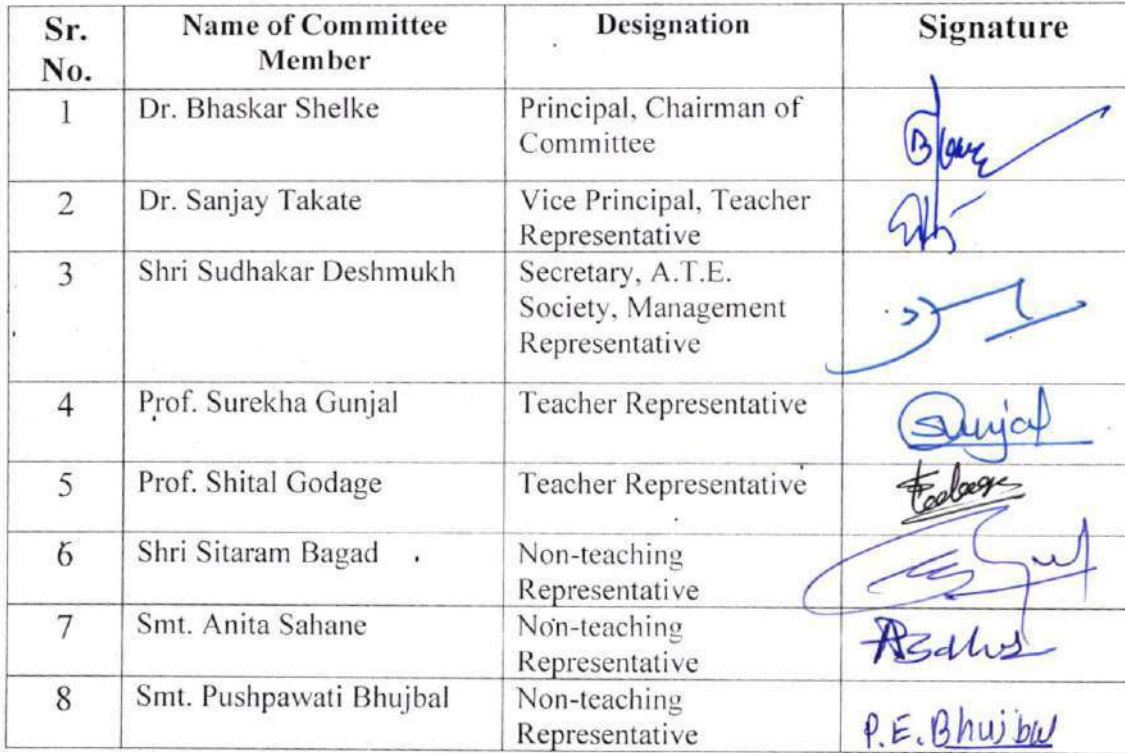 Sr. Name of Committee Designation Signature
No. Member
1 Dr. Bhaskar Shelke Principal, Chairman of
Committee
2 Dr. Sanjay Takate Vice Principal, Teacher
Representative
3 Shri Sudhakar Deshmukh Secretary, A.T.E.
Society, Management
Representative
4 Prof. Surekha Gunjal Teacher Representative Gunjal
5 Prof. Shital Godage Teacher Representative
6 Shri Sitaram Bagad Non-teaching
Representative
7 Smt. Anita Sahane Non-teaching
Representative
8 Smt. Pushpawati Bhujbal Non-teaching
Representative P.E. Bhujbal